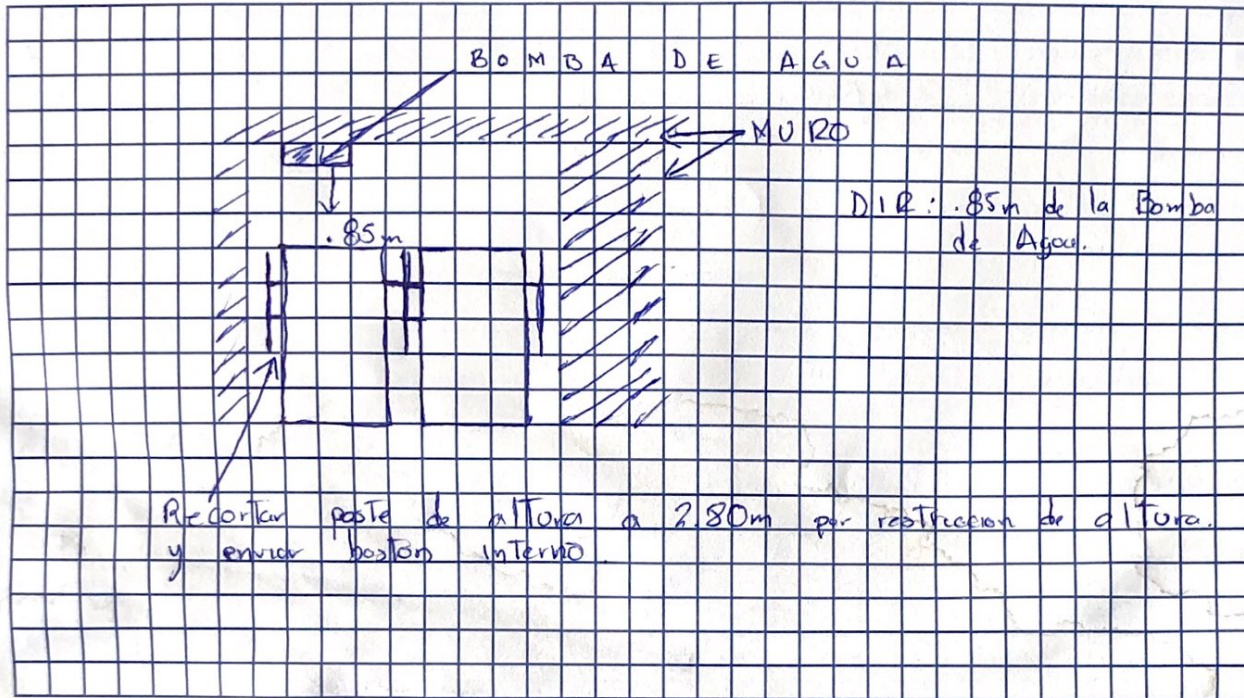 BOMBA DE AGUA
MURO
DIR: .85m de la Bomba
de Agua.
.85m
Recortar poste de altura a 2.80m por restriccion de altura.
y enviar baston interno.